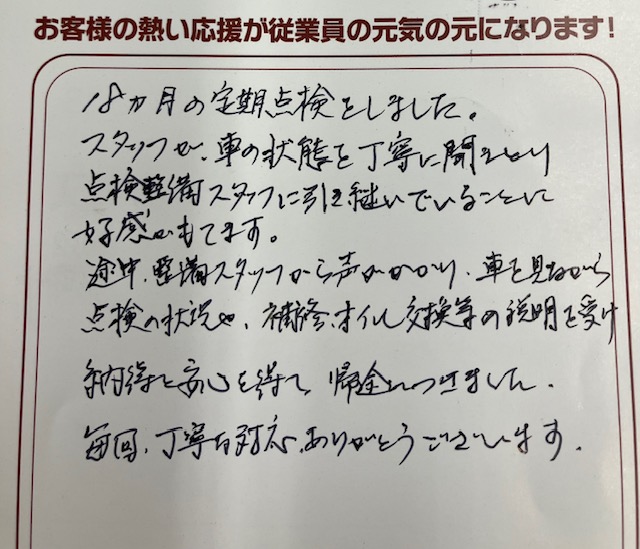 お客様の熱い応援が従業員の元気の元になります!
18カ月の定期点検をしました。
スタッフが、車の状態を丁寧に聞きとり
点検整備スタッフに引き継いでいることに
好感がもてます。
途中、整備スタッフから声がかかり、車を見ながら
点検の状況や、補修、オイル交換等の説明を受け
納得と安心を得て、帰途につきました.
毎回、丁寧な対応、ありがとうございます.